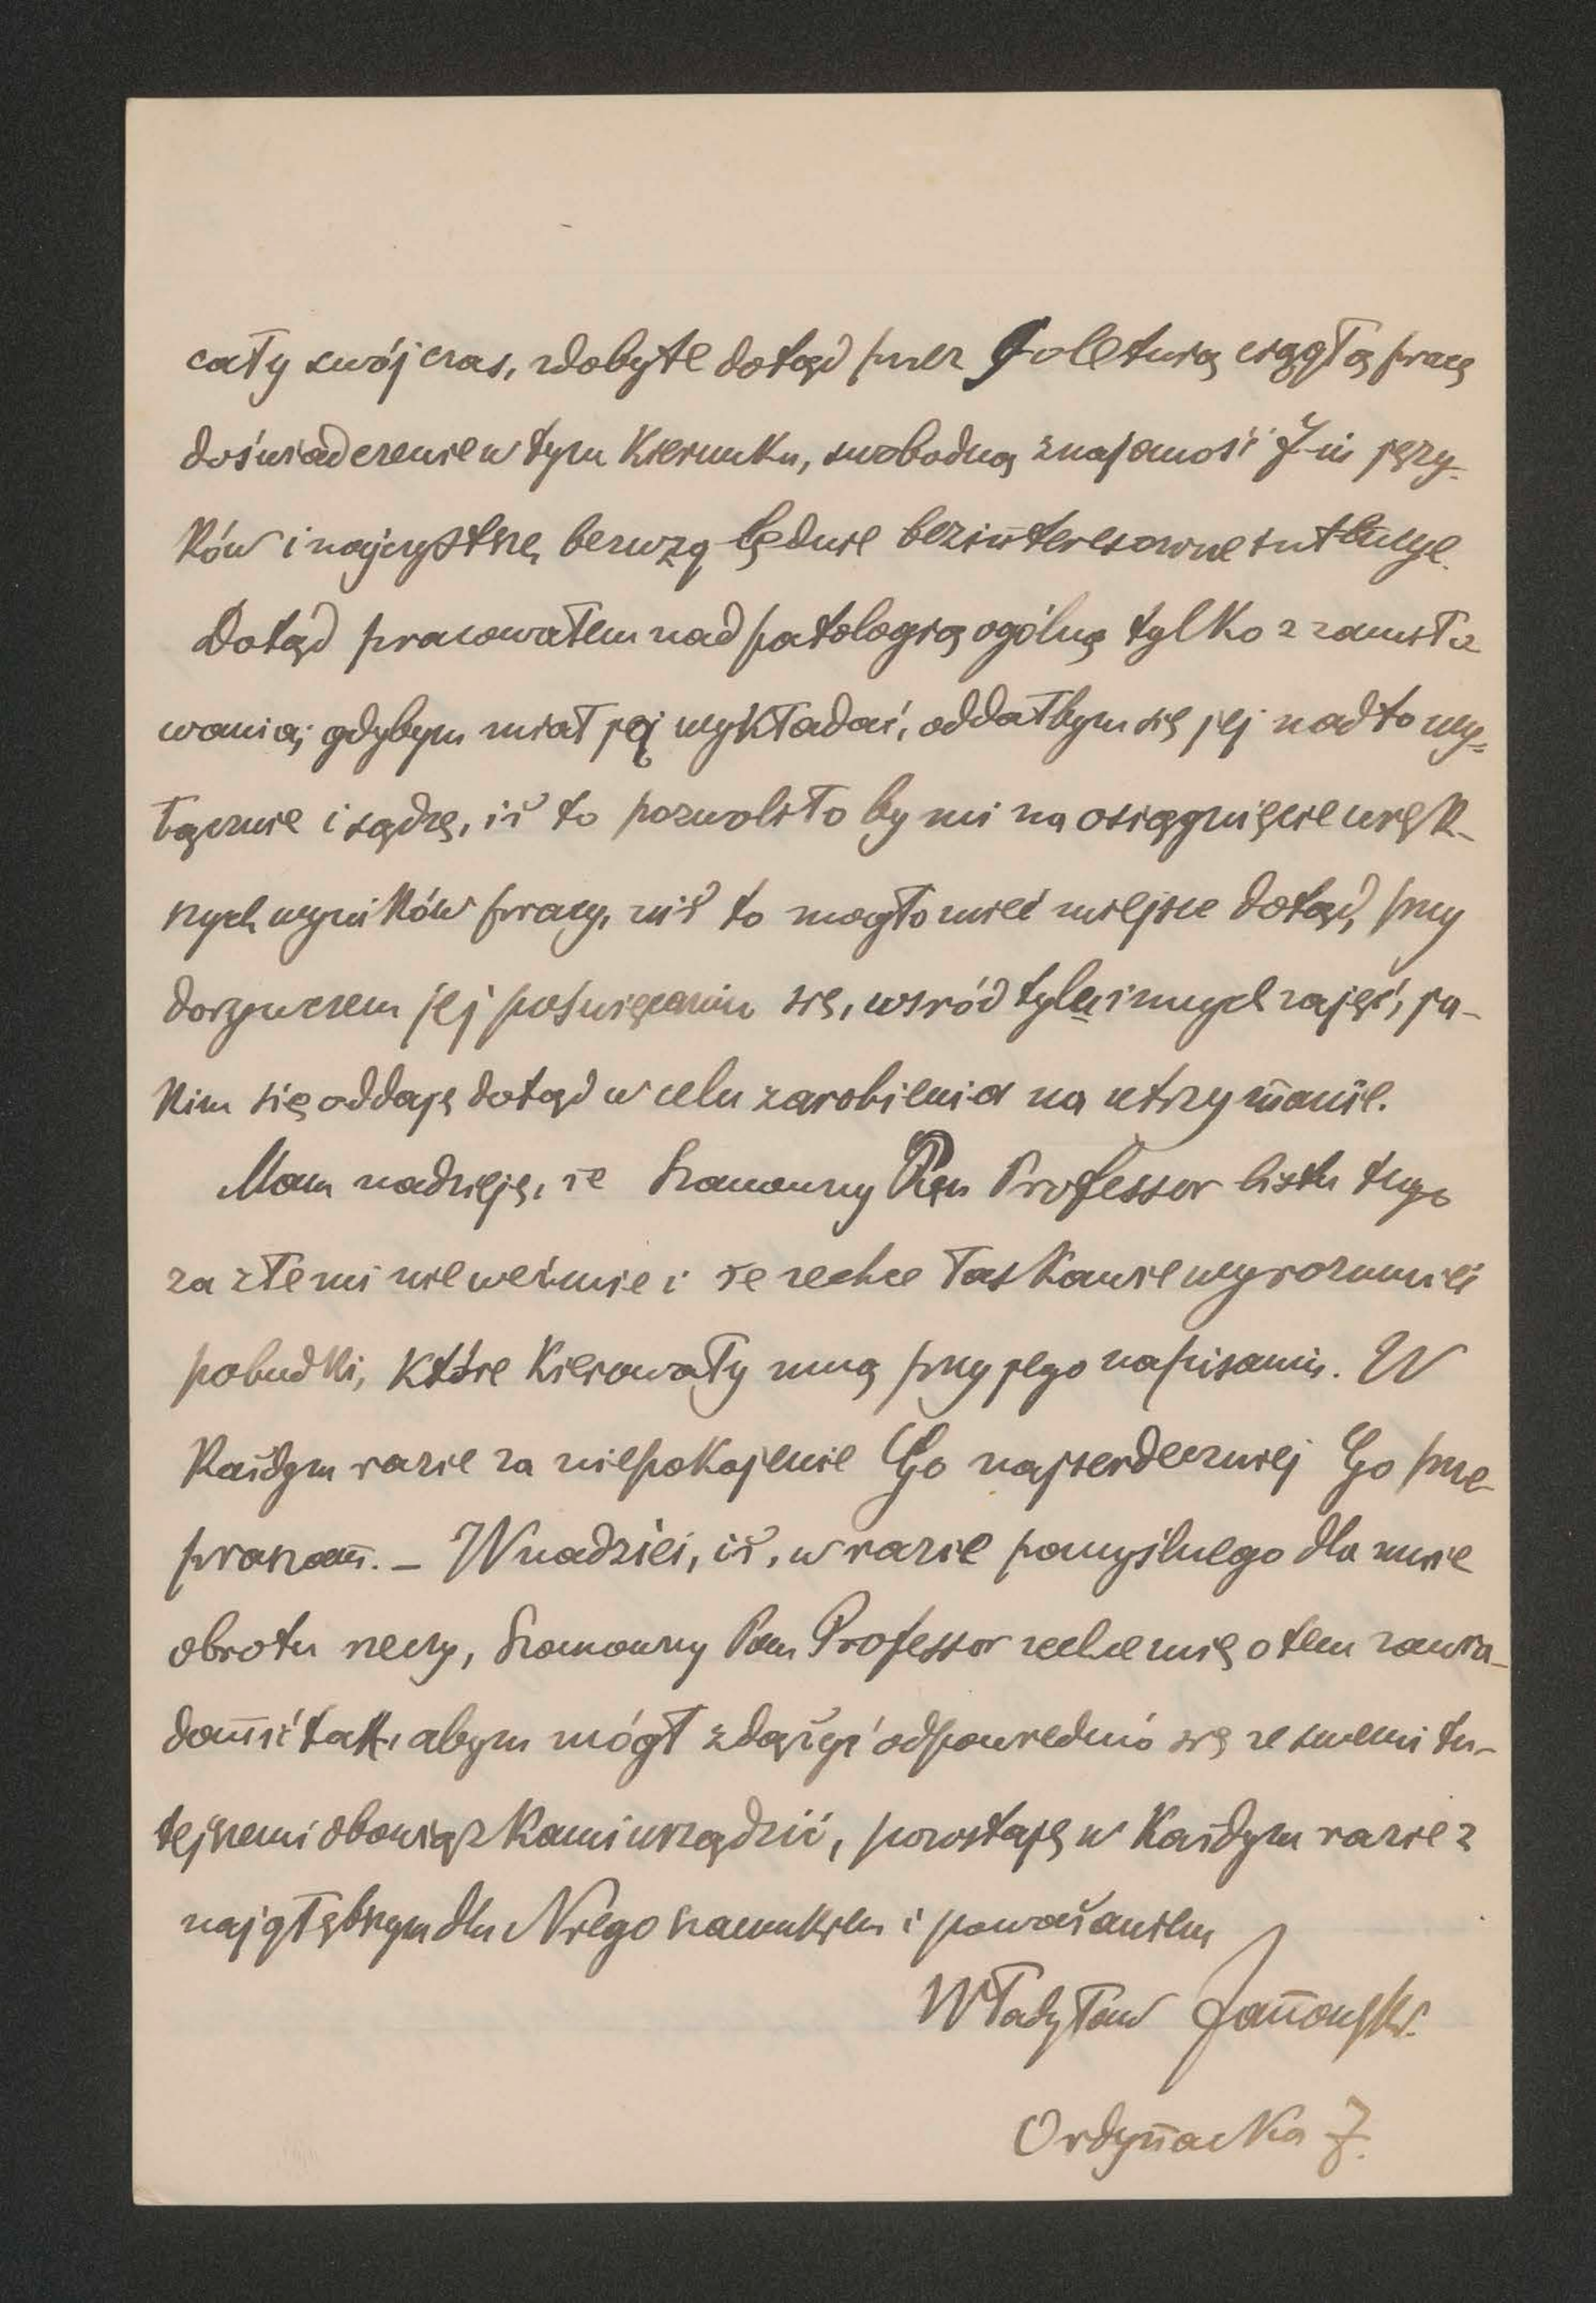 cały swój czas, zdobyte dotąd przez 9-oletnią ciągłą pracę
doświadczenie w tym kierunku, swobodną znajomość 7-iu języ-
ków i najczystsze, bezwzględnie bezinteresowne intencye.
Dotąd pracowałem nad patologią ogólną tylko z zamiło
wania; gdybym miał ją wykładać, oddałbym się jej nadto wy-
łącznie i sądzę, iż to pozwoliło by mi na osiągnięcie więk-
szych wyników pracy, niż to mogło mieć miejsce dotąd, przy
dorywczem jej poświęcaniu się, wsród tylu innych zajęć, ja-
kim się oddaję dotąd w celu zarobienia na utrzymanie.
Mam nadzieję, że Szanowny Pan Professor listu tego
za złe mi nie weźmie i że zechce łaskawie wyrozumieć
pobudki, które kierowały mną przy jego napisaniu. W
każdym razie za niepokojenie Go najserdeczniej Go prze-
praszam. – W nadziei, iż, w razie pomyślnego dla mnie
obrotu rzeczy, Szanowny Pan Professor zechce mię o tem zawia-
domić tak, abym mógł zdążyć odpowiednio się ze swemi tu-
tejszemi obowiązkami urządzić, pozostaję w każdym razie z
najgłębszym dla Niego szacunkiem i poważaniem
Władysław Janowski.
Ordynacka 7.